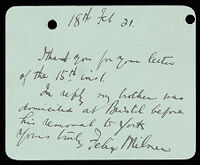 18th Feb 21.
Thank you for your letter
of the 15th inst.
In reply my brother was
domiciled at Bristol before
his removal to York
Yours truly Felix Milner